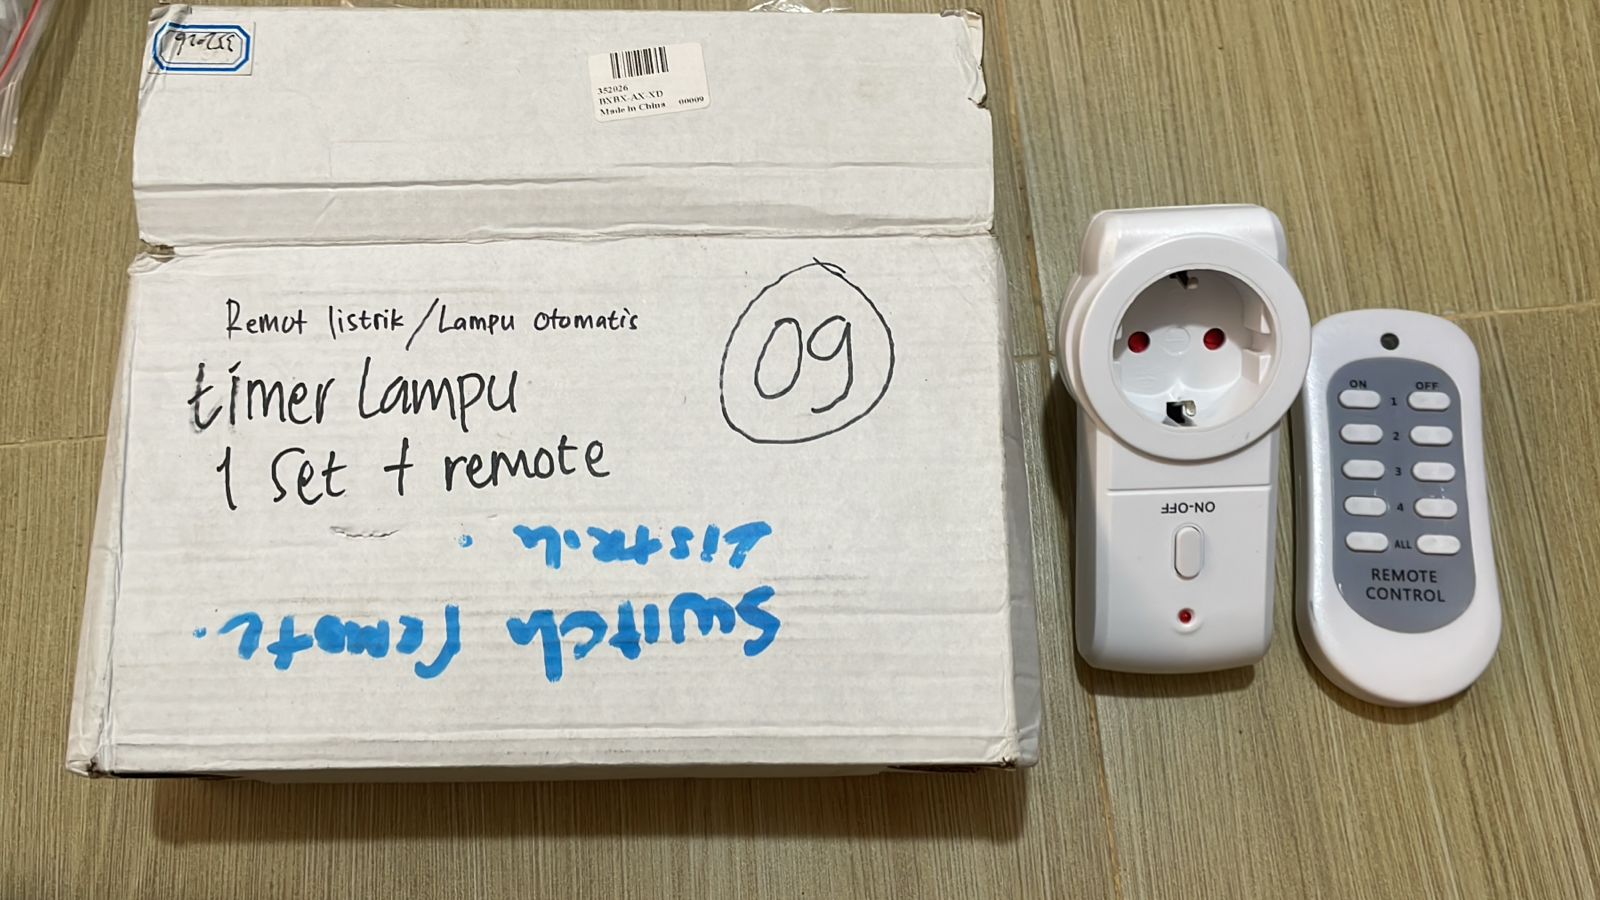 352026
352026
BXBX-AX-XD
Made in China 00009
Remot listrik/Lampu otomatis
timer lampu
1 set + remote
09
Switch remote.
Listrik.
ON-OFF
ON OFF
1
2
3
4
ALL
REMOTE
CONTROL